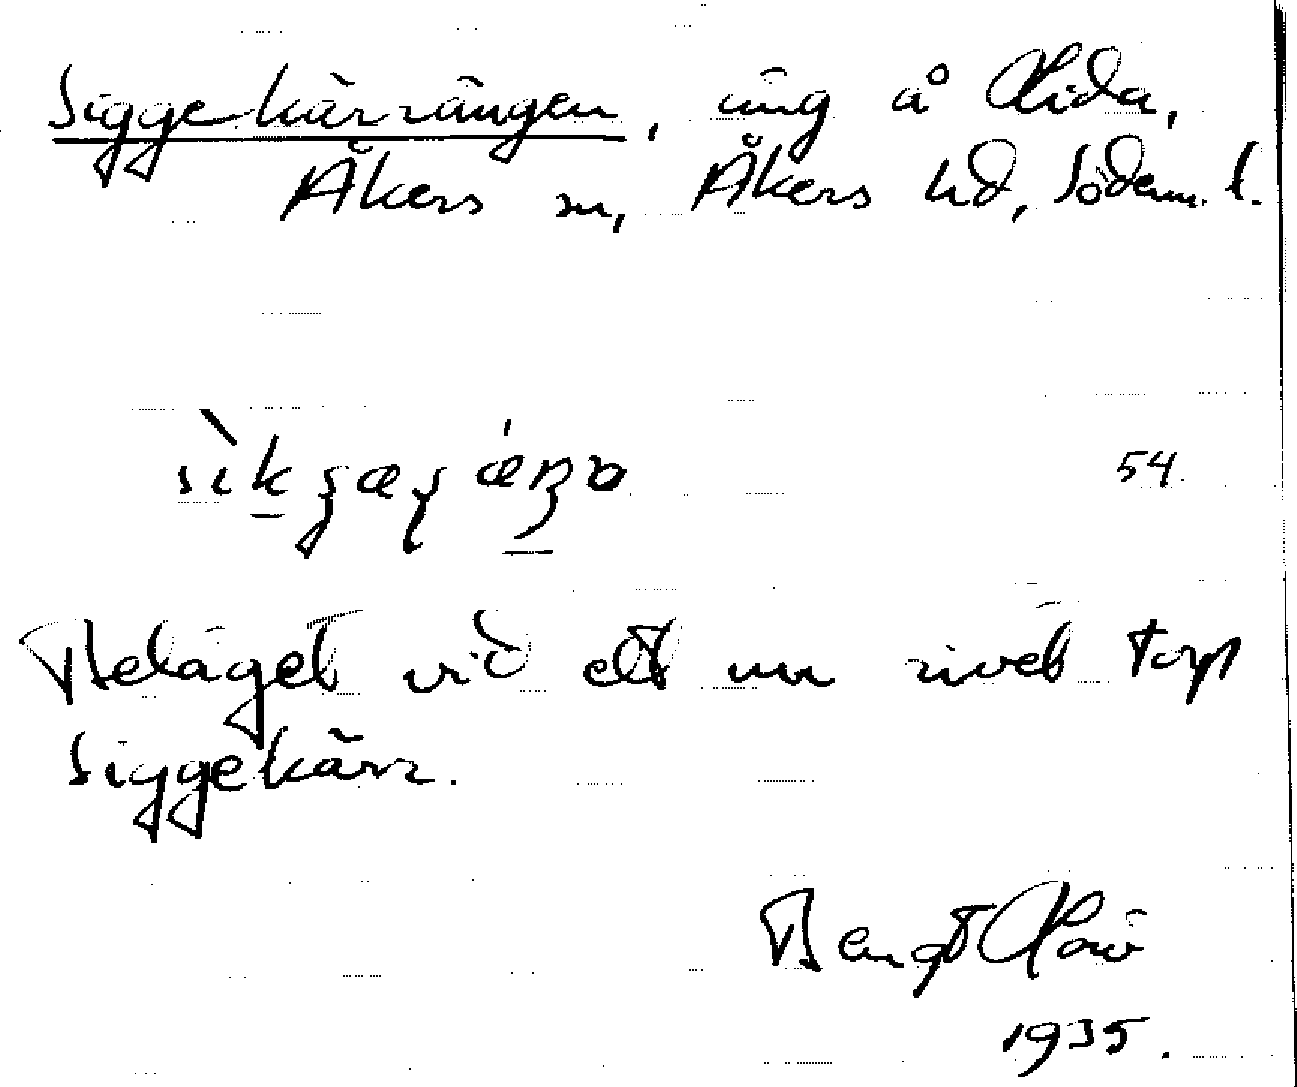 Siggekärrängen, äng å Lida,
Åkers sn, Åkers hd, Söderm. l.
54.
Beläget vid ett nu rivet torp
Siggekärr.
Bengt
1935.